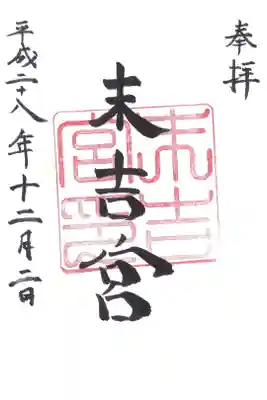 奉拝
末吉宮
平成二十八年十二月二日
末吉宮印